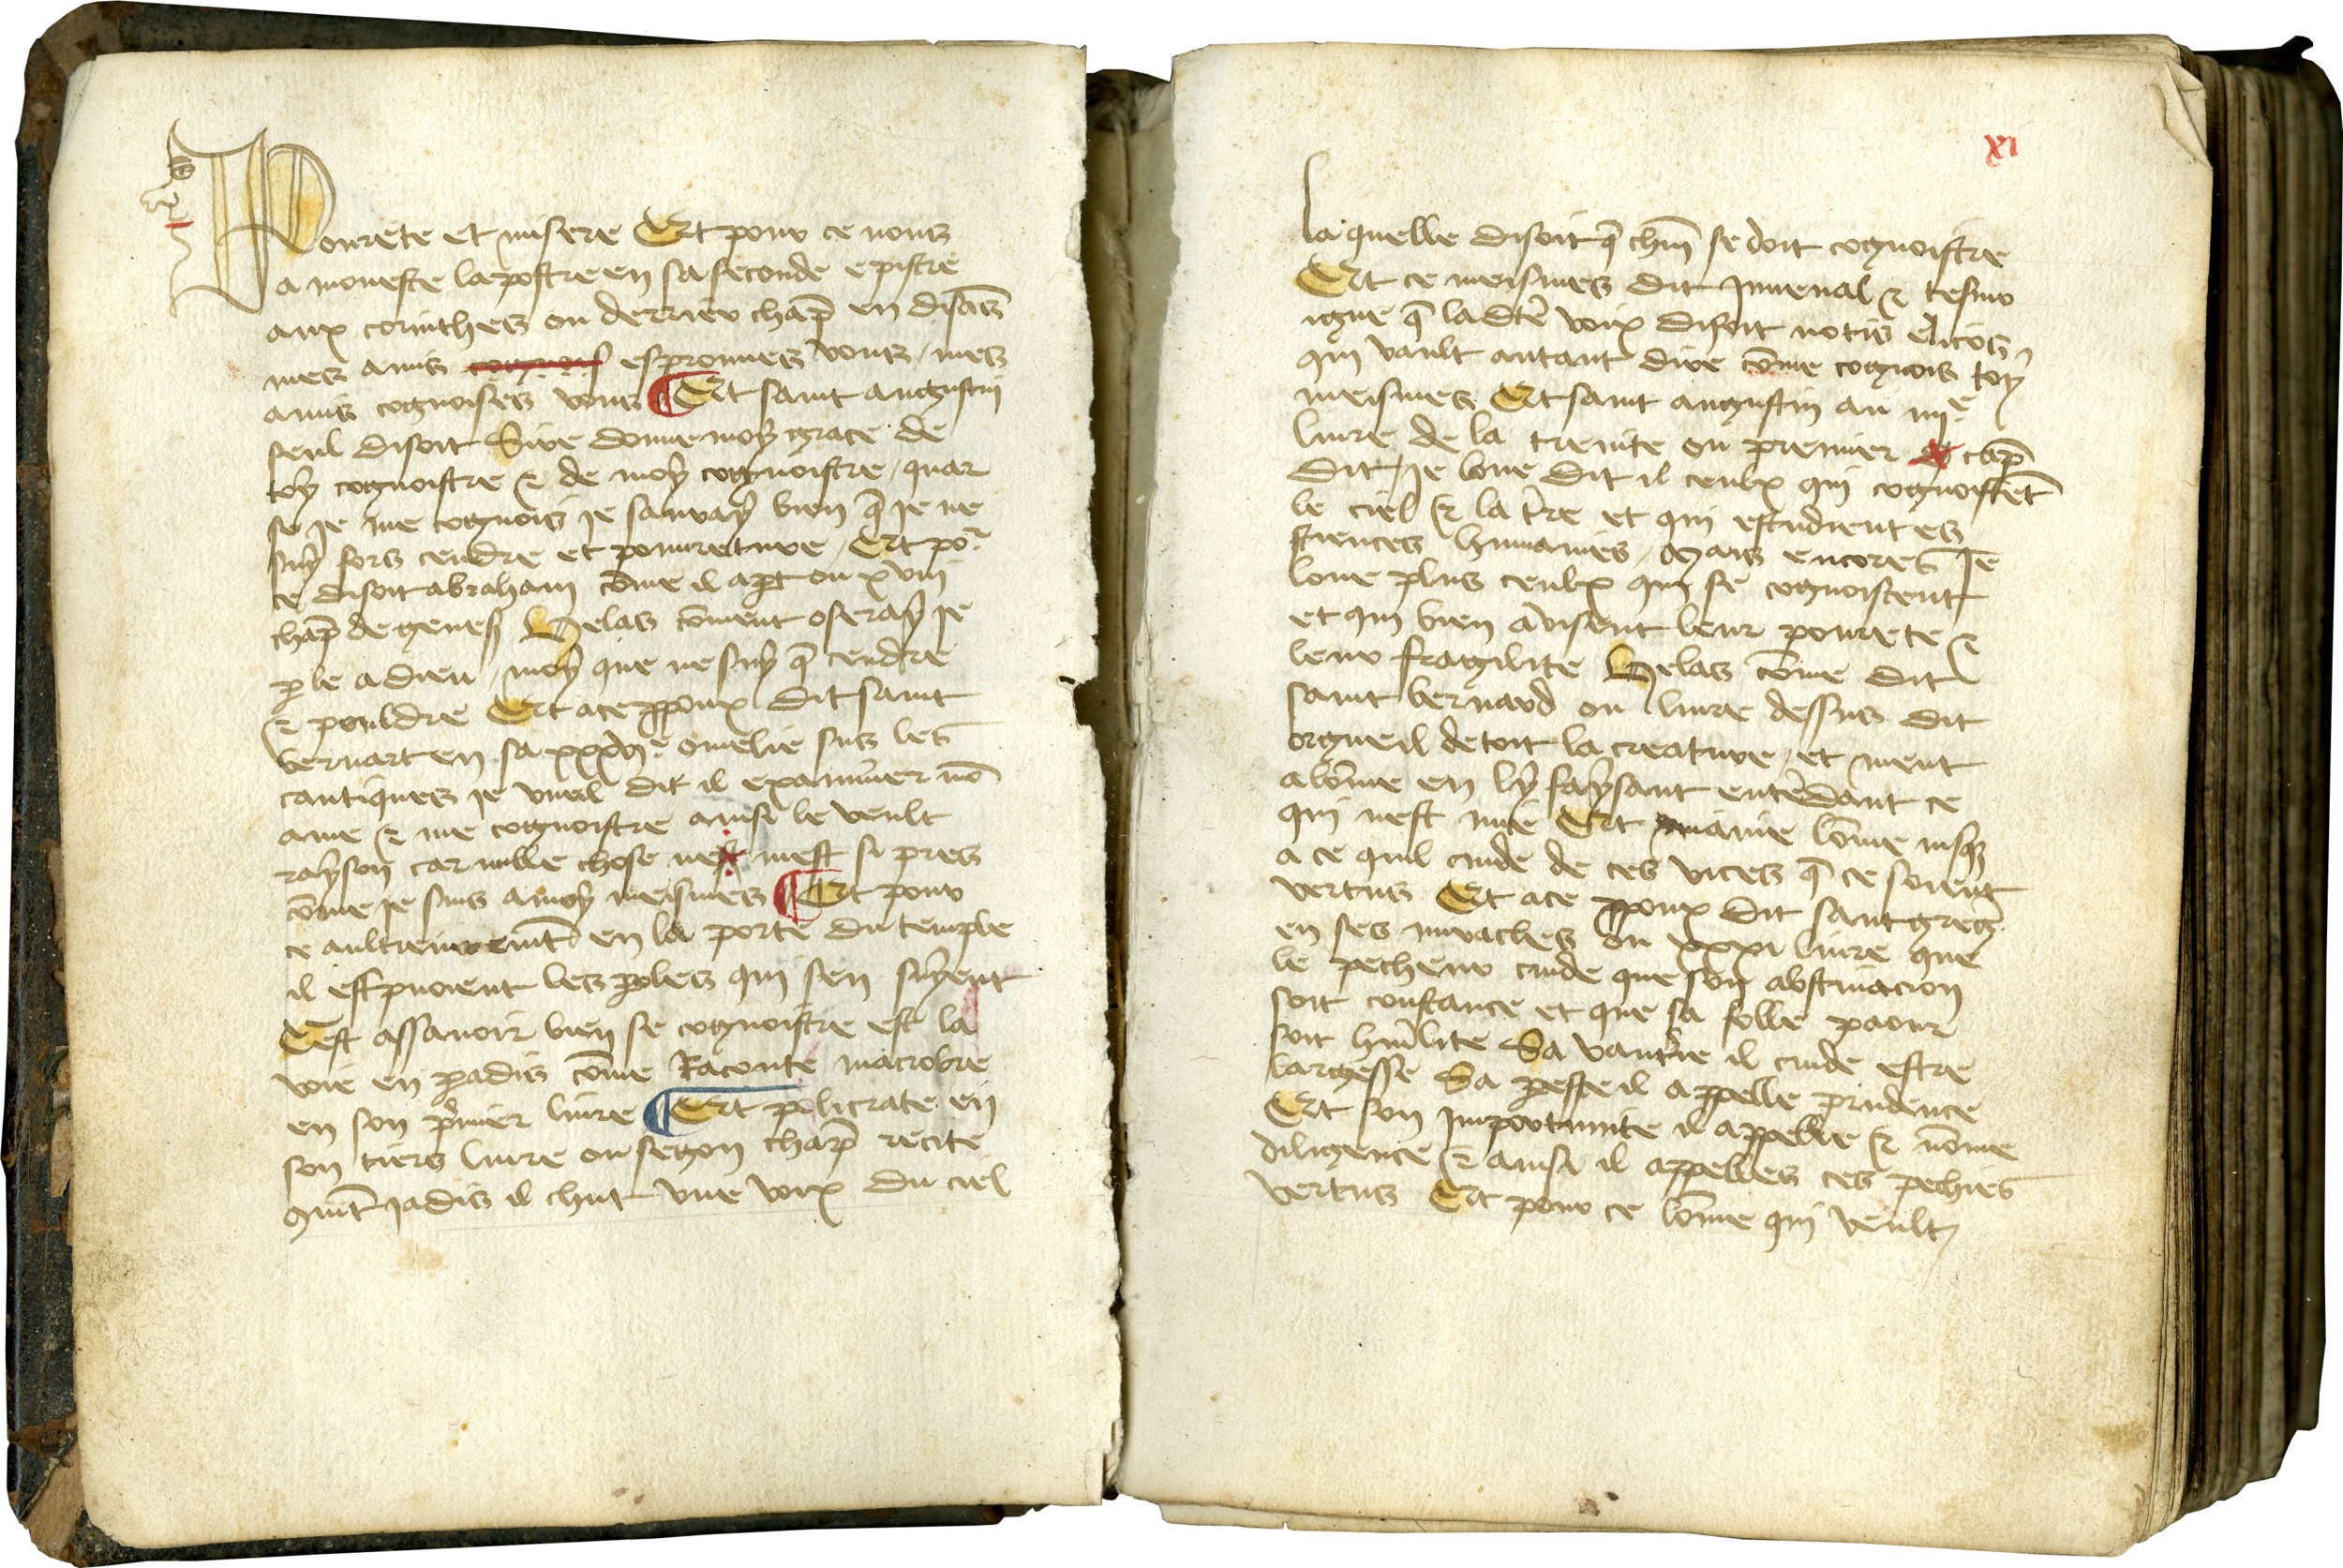 Pourete et misere Et pour ce nous
a moneste lapostre en sa seconde epistre
aux corinthes ou derrier chap̄ en disās
mes amis espronues vous / mes
amis cognoises vous ¶ Et saint augustin
seul disoit Sire donne moy grace de
toy cognoistre & de moy cognoistre / quar
se Je me cognois je sauray bien q̄ Je ne
suy fors cendre et pourreture / Et poͬ
ce disoit abraham cōme il apꝑt ou xviii
chap̄ de genes̄ Helas cōment oseray Je
ꝑle a dieu / moy que ne suy q̄ cendre
& pouldre Et a ce ꝓpoux dit saint
bernart en sa xxxviᵉ omelie sus les
cantiques je vueil dit il examiner mō
ame & me cognoistre ainsi le veult
rayson car nulle chose mest si pres
cōme je suis a moy meismes ¶ Et pour
ce en la porte du temple
il escripuoient les ꝑoles qui sen suyent
Cest assauoir bien se cognoistre est la
voie en ꝑadis cōme Raconte macrobre
en son p̄mier liure ¶ Et policrate en
son tiers liure ou segon chap̄ recite
q̄nt jadis il chut vne voix du ciel
xi
la quelle disoit q̄ chūn se doit cognoistre
Et ce meismes dit Juuenal & tesmo
igne q̄ la dc̄te voix disoit notis elicos
qui vault autant dire cōme cognois toy
meismes Et saint augustin au iiiiᵉ
liure de la trenite ou premier cap̄
dit / je loue dit il ceulx qui cognoistēt
le ciel & la t̄re et qui estudient es
sciences humaines / Mais encores Je
loue plus ceulx qui se cognoiscent
et qui bien auisent leur pourete &
leur fragilite Helas cōme dit
saint bernard ou liure dessus dit
orgueil decoit la creature / et ment
a lōme en ly faysant entēdant ce
qui nest mie Et maine lōme iusq̄
a ce quil cuide de ces vices q̄ ce soient
vertus Et a ce ꝓpoux dit saint greḡ
en ses ou xxxi liure que
le pecheur cuide que son abstinacion
soit constance et que sa folle paour
soit hūilite Sa vant̄ie il cuide estre
largesse Sa ꝑesse il appelle prudence
Et son Importunite il appelle & nōme
diligence & ainsi il appelles ces pechies
vertus Et pour ce lōme qui veult